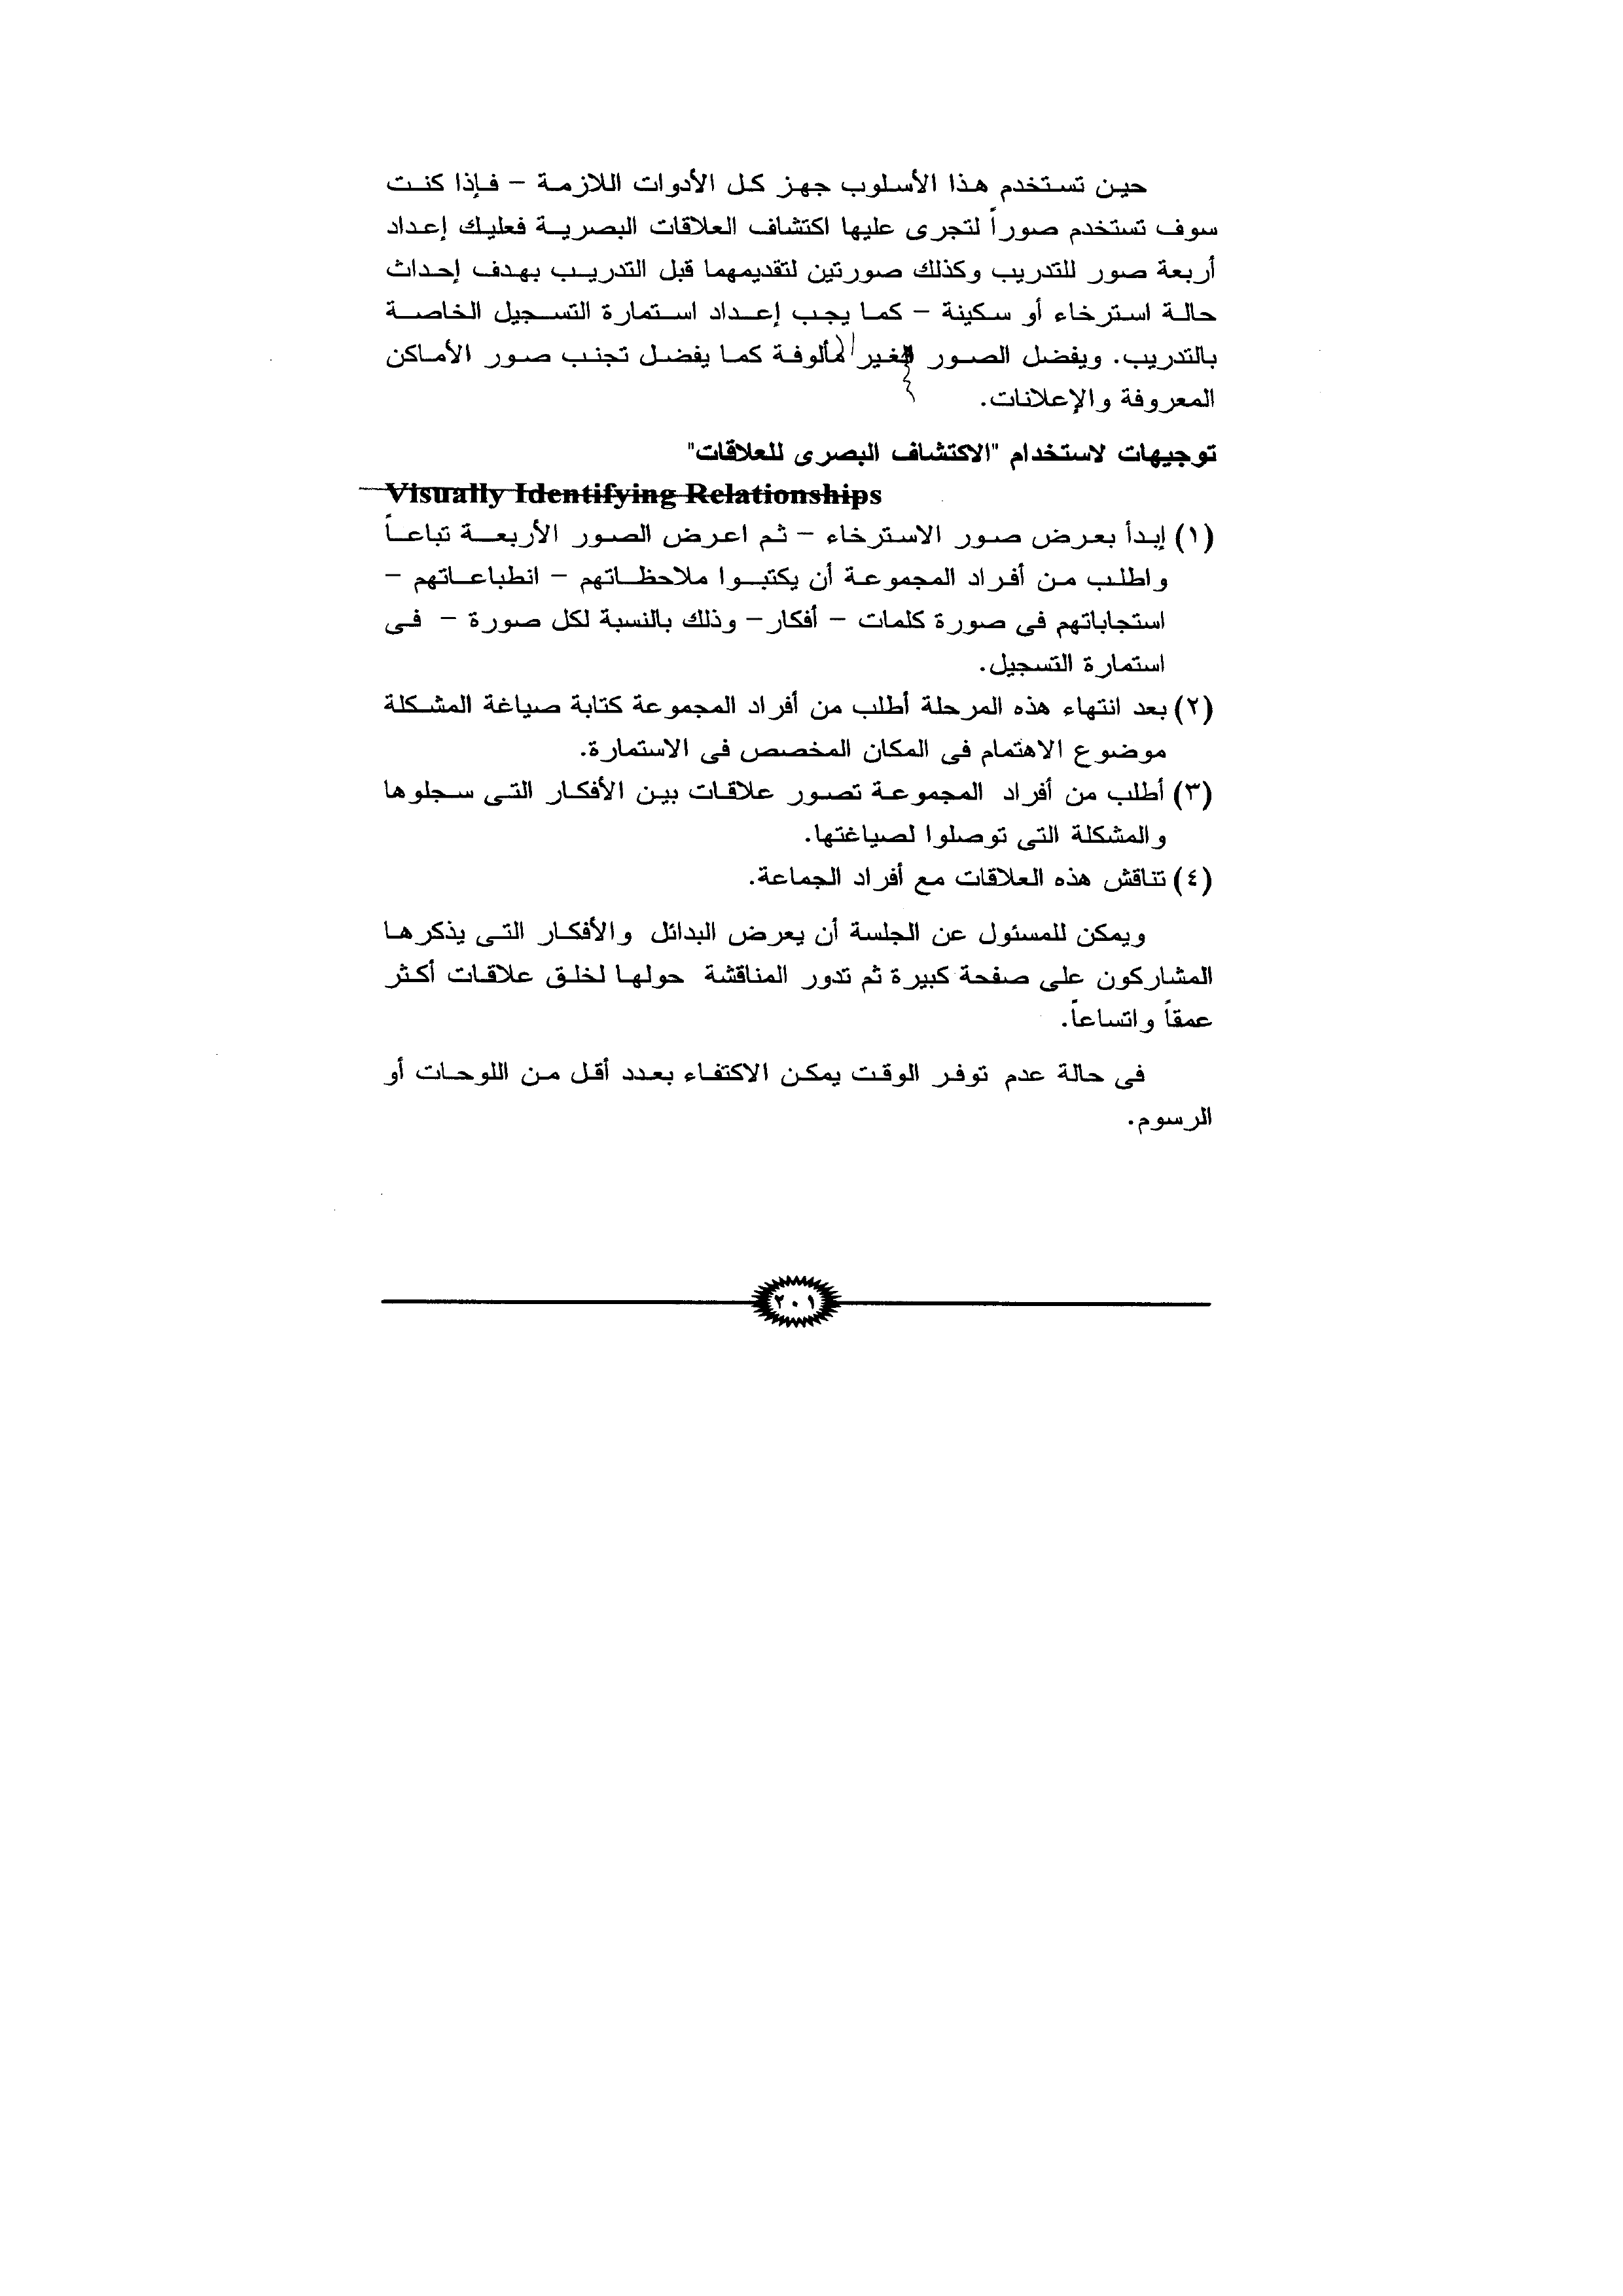 حين تستخدم هذا الأسلوب جهز كل الأدوات اللازمة – فإذا كنت
سوف تستخدم صوراً لتجرى عليها اكتشاف العلاقات البصرية فعليك إعداد
أربعة صور للتدريب وكذلك صورتين لتقديمهما قبل التدريب بهدف إحداث
حالة استرخاء أو سكينة – كما يجب إعداد استمارة التسجيل الخاصة
بالتدريب. ويفضل الصور غير المألوفة كما يفضل تجنب صور الأماكن
المعروفة والإعلانات.
توجيهات لاستخدام "الاكتشاف البصرى للعلاقات"
Visually Identifying Relationships
(١) إبدأ بعرض صور الاسترخاء – ثم اعرض الصور الأربعة تباعاً
واطلب من أفراد المجموعة أن يكتبوا ملاحظاتهم – انطباعاتهم –
استجاباتهم فى صورة كلمات – أفكار– وذلك بالنسبة لكل صورة – فى
استمارة التسجيل.
(٢) بعد انتهاء هذه المرحلة أطلب من أفراد المجموعة كتابة صياغة المشكلة
موضوع الاهتمام فى المكان المخصص فى الاستمارة.
(٣) أطلب من أفراد المجموعة تصور علاقات بين الأفكار التى سجلوها
والمشكلة التى توصلوا لصياغتها.
(٤) تناقش هذه العلاقات مع أفراد الجماعة.
ويمكن للمسئول عن الجلسة أن يعرض البدائل والأفكار التى يذكرها
المشاركون على صفحة كبيرة ثم تدور المناقشة حولها لخلق علاقات أكثر
عمقاً واتساعاً.
فى حالة عدم توفر الوقت يمكن الاكتفاء بعدد أقل من اللوحات أو
الرسوم.
٢٠١